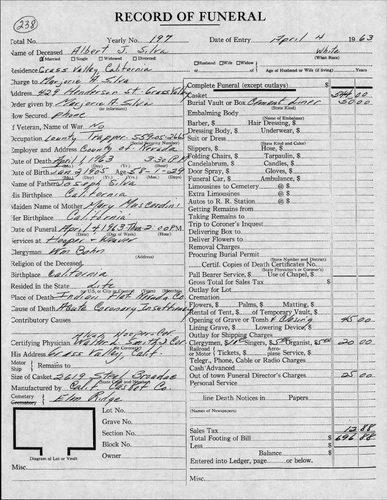 238
RECORD OF FUNERAL
Total No. Yearly No. 197 Date of Entry April 4 1963
Name of Deceased Albert J. Silva White
Married Single Widowed Divorced Husband Wife Widow or of (What Race)
Residence Grass Valley, California Age of Husband or Wife (if living) Years
Charge to Marjorie A. Silva
Address 429 Henderson St. Grass Valley
Order given by Marjorie A. Silva
How Secured phone
If Veteran, Name of War No
Occupation County Trapper 559-05-2660
Employer and Address County of Nevada
Date of Death April 1 1963 3:30 P.M.
Date of Birth Jan 3 1905 Age 58-1-29
Name of Father Joseph Silva
His Birthplace California
Maiden Name of Mother Mary
Her Birthplace California
Date of Funeral April 4 1963 Thu 2:00 PM
Services at Hooper + Weaver
Clergyman Wm Bohn
(Address)
Religion of the Deceased
Birthplace California
Resided in the State Life
Place of Death Indian Flat Nevada Co
Cause of Death Acute Coronary Insufficiency
Contributory Causes
Alvah Hooper Cor.
Certifying Physician Walter L. Smith, J Cor
His Address Grass Valley, Calif.
Motor
Ship
Size of Casket 2619 Steel Bronze
Manufactured by Calif Casket Co.
Cemetery
Crematory Elm Ridge
Lot No.
Grave No.
Section No.
Block No.
Owner
Diagram of Lot or Vault
Misc.
Complete Funeral (except outlays) $
Casket 544.00
Burial Vault or Box Cement Liner 50.00
Embalming Body
(Name of Embalmer)
Barber, $ Hair Dressing, $
Dressing Body, $ Underwear, $
Suit or Dress
(State Kind and Color)
Slippers, $ Hose, $
Folding Chairs, $ Tarpaulin, $
Candelabrum, $ Candles, $
Door Spray, $ Gloves, $
Funeral Car, $ Ambulance, $
Limousines to Cemetery @ $
Extra Limousines @ $
Autos to R. R. Station @ $
Getting Remains from
Taking Remains to
Trip to Coroner's Inquest
Delivering Box to
Deliver Flowers to
Removal Charges
Procuring Burial Permit
(State Number and District)
Certif. Copies of Death Certificates No.
Pall Bearer Service, $ Use of Chapel, $
Gross Total for Sales Tax $
Outlay for Lot
Cremation
Flowers, $ Palms, $ Matting, $
Rental of Tent, $ of Temporary Vault, $
Opening of Grave or Tomb 45.00
Lining Grave, $ Lowering Device, $
Outlay for Shipping Charges
Clergymen, $ Singers, $ Organist, $ 20.00
Railroad or Motor Tickets, $ Aeroplane Service, $
Telegr., Phone, Cable or Radio Charges
Cash Advanced
Out of town Funeral Director's Charges 25.00
Personal Service
line Death Notices in Papers
(Names of Newspapers)
Sales Tax 12.88
Total Footing of Bill $ 696.88
Less $
Balance $
Entered into Ledger, page or below.
Misc.